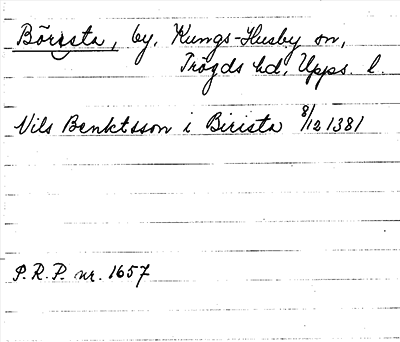 Börista, by, Kungs-Husby sn,
Trögds hd, Upps. l.
Nils Benktsson i Birista 8/12 1381
P.R.P. nr. 1657